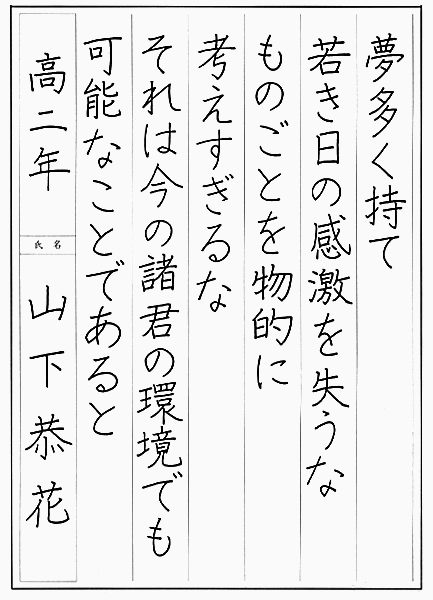 夢多く持て
若き日の感激を失うな
ものごとを物的に
考えすぎるな
それは今の諸君の環境でも
可能なことであると
高二年
氏名
山下恭花